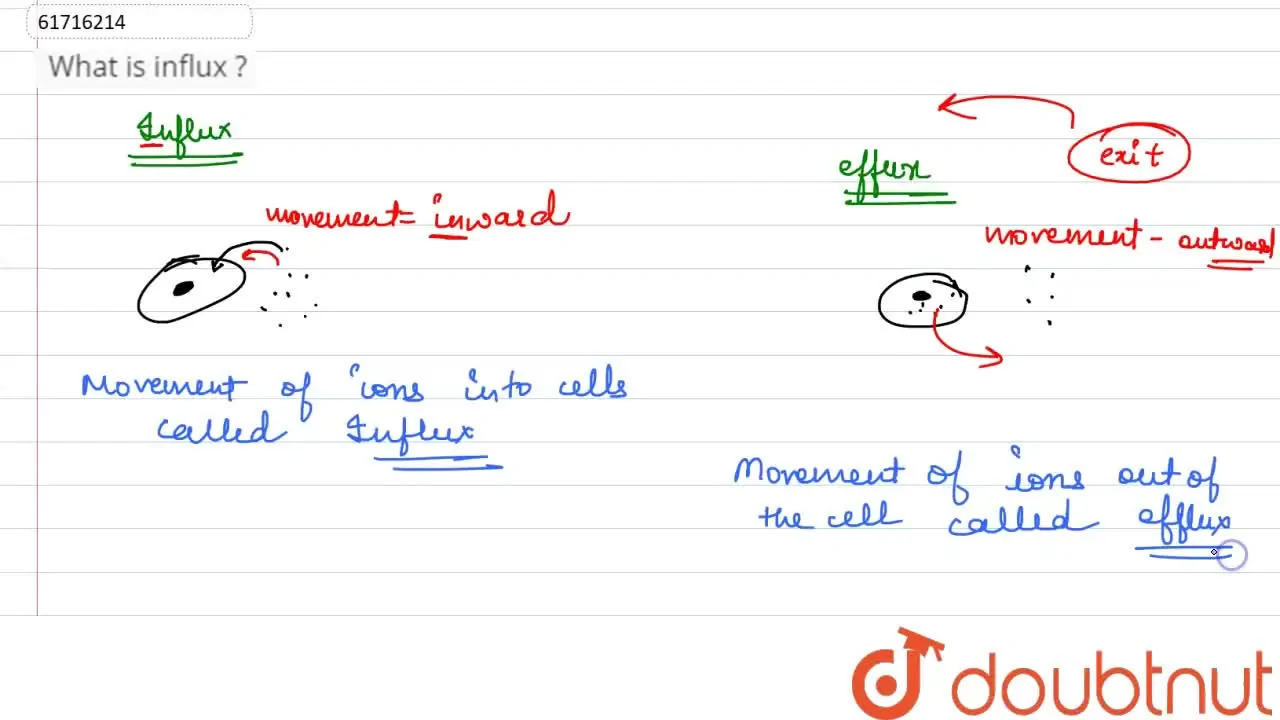 61716214
What is influx ?
Influx
movement= inward
Movement of ions into cells
called Influx
exit
efflux
movement - outward
Movement of ions out of
the cell called efflux
doubtnut